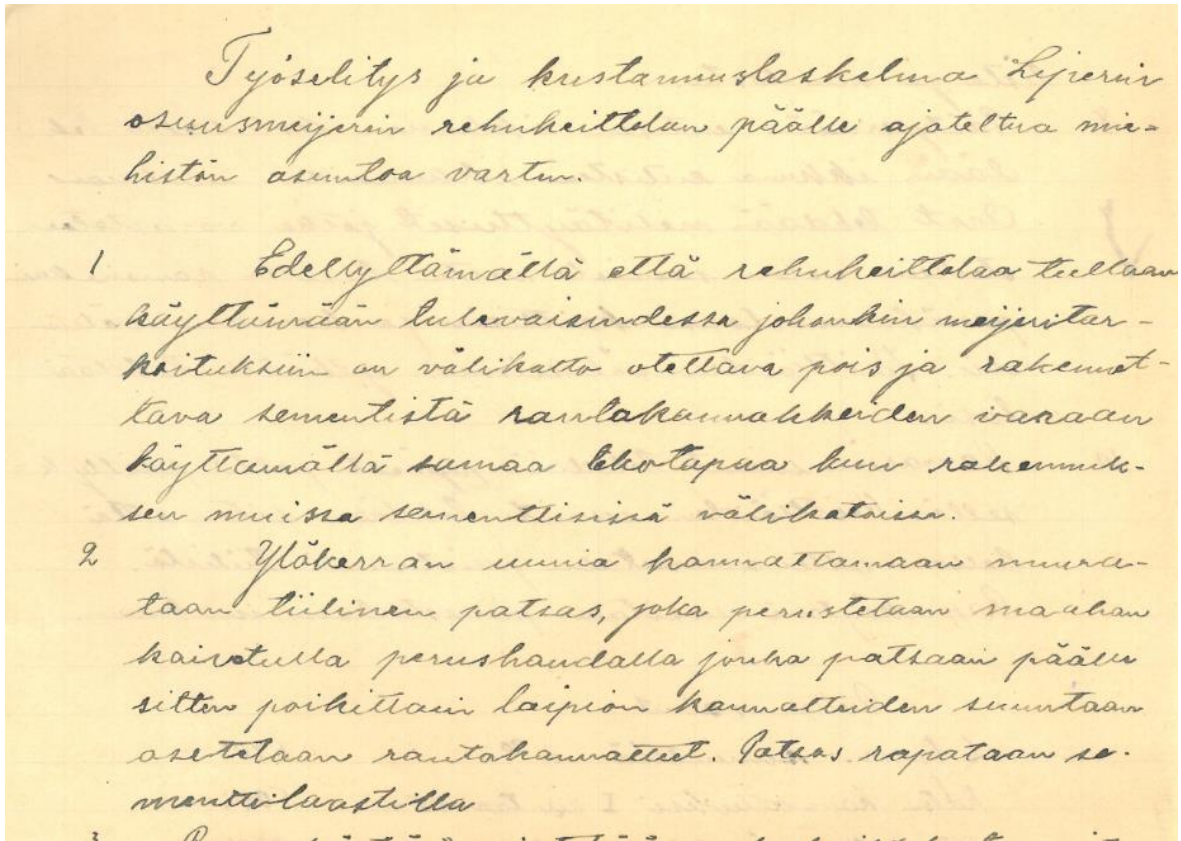 Työselitys ja kustannuslaskelma Liperin
osuusmeijerin rehukeittolan päälle ajateltua mie-
histön asuntoa varten.
1 Edellyttämällä että rehukeittolaa tullaan
käyttämään tulevaisuudessa johonkin meijeritar-
koituksiin on välikatto otettava pois ja rakennet-
tava sementistä rautakannakkeiden varaan
käyttämällä samaa tekotapaa kun rakennuk-
sen muissa sementtisissä välikatoissa.
2 Yläkerran uunia kannattamaan muura-
taan tiilinen patsas, joka perustetaan maahan
kaivetulla perushaudalla jonka patsaan päälle
sitten poikittain laipion kannatteiden suuntaan
asetetaan rautakannatteet. Patsas rapataan se-
menttilaastilla
3